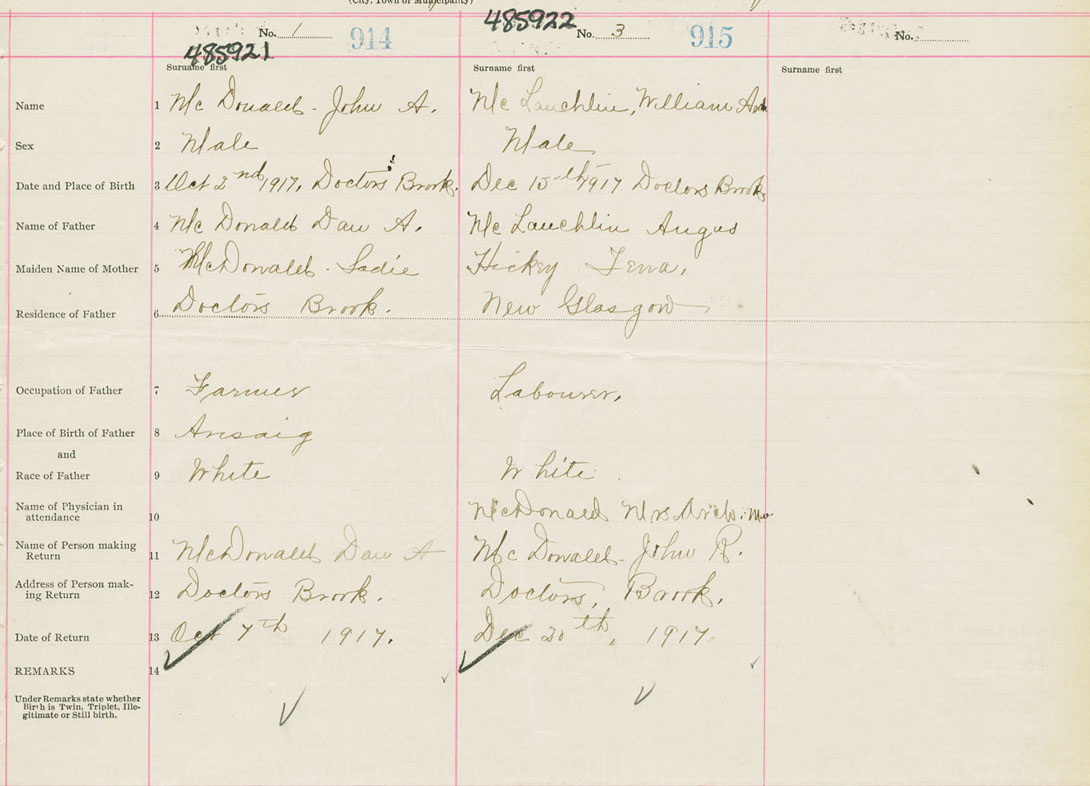 (City, Town or Municipality)
485922
No. 1 914 No. 3 915 No.
485921
Surname first Surname first Surname first
Name 1 McDonald - John A. McLauchlin, William
Sex 2 Male Male
Date and Place of Birth 3 Oct 2nd 1917, Doctors Brook. Dec 15th 1917 Doctors Brook
Name of Father 4 McDonald Dan A. McLauchlin Angus
Maiden Name of Mother 5 McDonald - Sadie Hickey Tena,
Residence of Father 6 Doctors Brook. New Glasgow
Occupation of Father 7 Farmer Labourer,
Place of Birth of Father 8 Arisaig
and
Race of Father 9 White White
Name of Physician in
attendance 10 McDonald Mrs
Name of Person making
Return 11 McDonald Dan A McDonald - John R.
Address of Person mak-
ing Return 12 Doctors Brook. Doctors, Brook,
Date of Return 13 Oct 7th 1917. Dec 20th, 1917.
REMARKS 14
Under Remarks state whether
Birth is Twin, Triplet, Ille-
gitimate or Still birth.